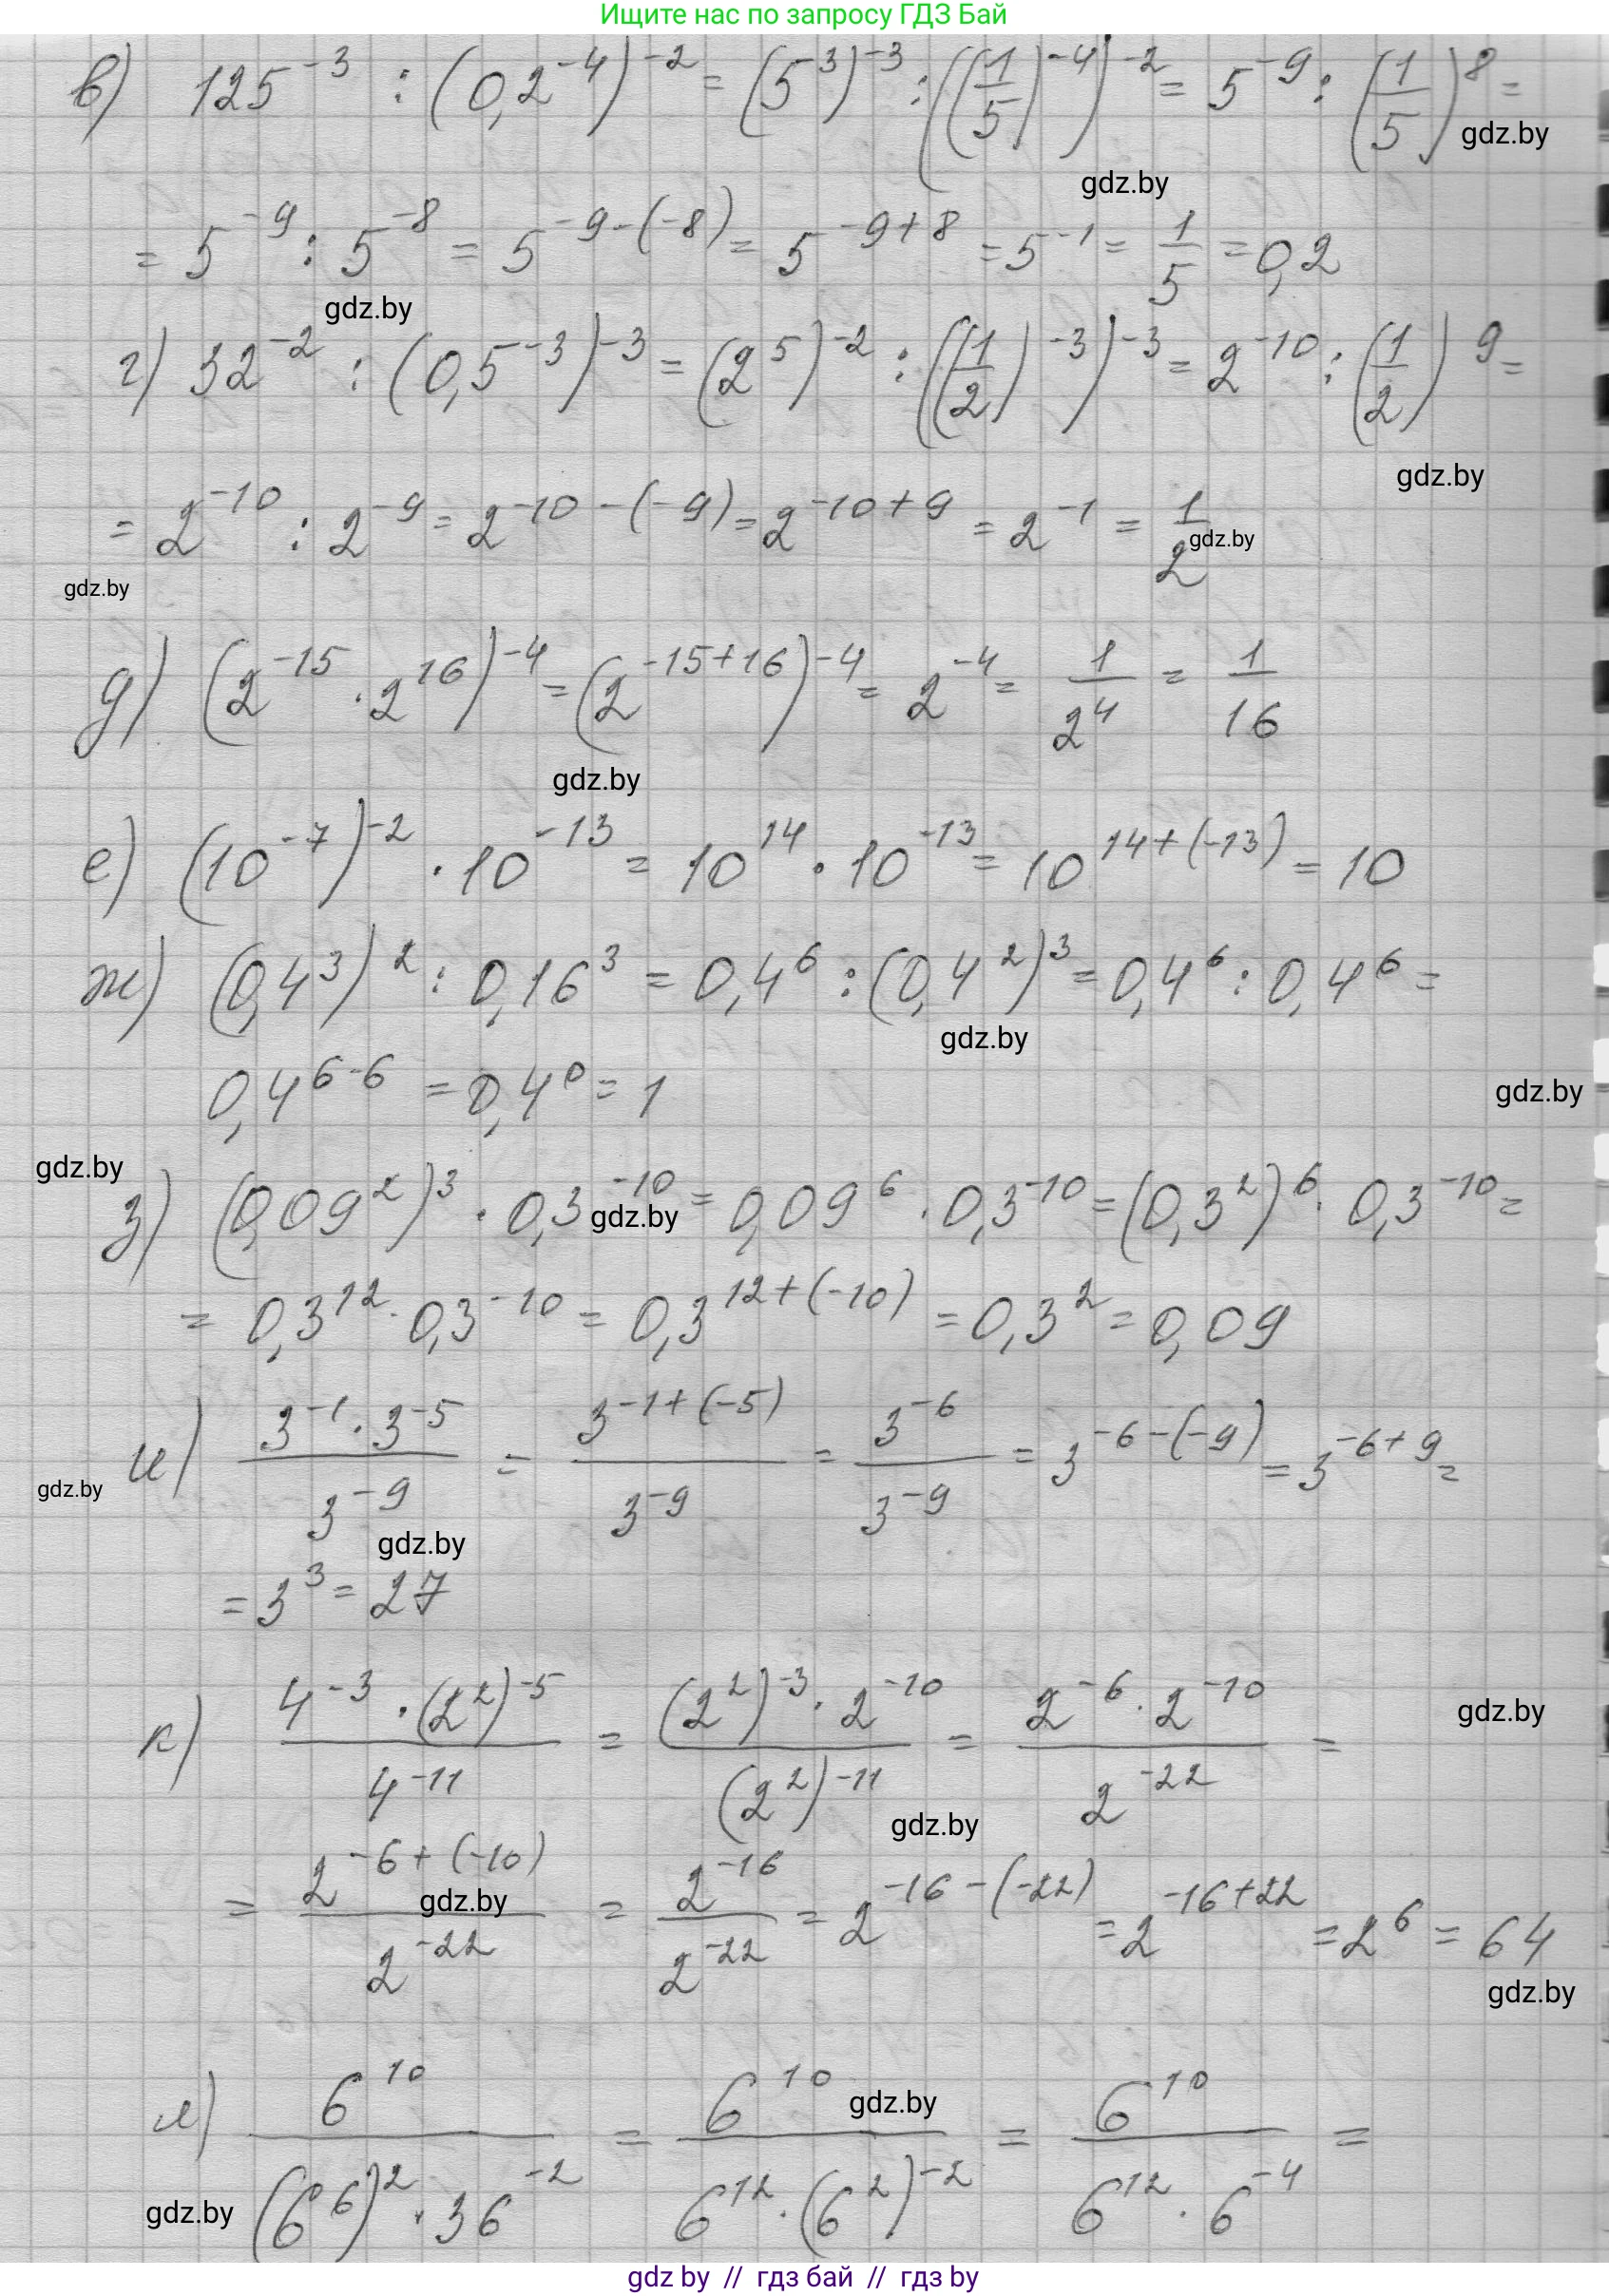 Ищите нас по запросу ГДЗ Бай
в) 125⁻³ : (0,2⁻⁴)⁻² = (5³)⁻³ : ((1/5)⁻⁴)⁻² = 5⁻⁹ : (1/5)⁸ =
gdz.by
gdz.by
= 5⁻⁹ : 5⁻⁸ = 5⁻⁹⁻⁽⁻⁸⁾ = 5⁻⁹⁺⁸ = 5⁻¹ = 1/5 = 0,2
gdz.by
г) 32⁻² : (0,5⁻³)⁻³ = (2⁵)⁻² : ((1/2)⁻³)⁻³ = 2⁻¹⁰ : (1/2)⁹ =
gdz.by
= 2⁻¹⁰ : 2⁻⁹ = 2⁻¹⁰⁻⁽⁻⁹⁾ = 2⁻¹⁰⁺⁹ = 2⁻¹ = 1/2
gdz.by
gdz.by
д) (2⁻¹⁵ · 2¹⁶)⁻⁴ = (2⁻¹⁵⁺¹⁶)⁻⁴ = 2⁻⁴ = 1/2⁴ = 1/16
gdz.by
е) (10⁻⁷)⁻² · 10⁻¹³ = 10¹⁴ · 10⁻¹³ = 10¹⁴⁺⁽⁻¹³⁾ = 10
ж) (0,4³)² : 0,16³ = 0,4⁶ : (0,4²)³ = 0,4⁶ : 0,4⁶ =
gdz.by
0,4⁶⁻⁶ = 0,4⁰ = 1
gdz.by
gdz.by
з) (0,09²)³ · 0,3⁻¹⁰ = 0,09⁶ · 0,3⁻¹⁰ = (0,3²)⁶ · 0,3⁻¹⁰ =
gdz.by
= 0,3¹² · 0,3⁻¹⁰ = 0,3¹²⁺⁽⁻¹⁰⁾ = 0,3² = 0,09
и) (3⁻¹ · 3⁻⁵)/3⁻⁹ = 3⁻¹⁺⁽⁻⁵⁾/3⁻⁹ = 3⁻⁶/3⁻⁹ = 3⁻⁶⁻⁽⁻⁹⁾ = 3⁻⁶⁺⁹ =
gdz.by
gdz.by
= 3³ = 27
к) (4⁻³ · (2²)⁻⁵)/4⁻¹¹ = ((2²)⁻³ · 2⁻¹⁰)/(2²)⁻¹¹ = (2⁻⁶ · 2⁻¹⁰)/2⁻²² =
gdz.by
gdz.by
= 2⁻⁶⁺⁽⁻¹⁰⁾/2⁻²² = 2⁻¹⁶/2⁻²² = 2⁻¹⁶⁻⁽⁻²²⁾ = 2⁻¹⁶⁺²² = 2⁶ = 64
gdz.by
gdz.by
л) 6¹⁰/((6⁶)² · 36⁻²) = 6¹⁰/(6¹² · (6²)⁻²) = 6¹⁰/(6¹² · 6⁻⁴) =
gdz.by
gdz.by
gdz by // гдз бай // гдз by